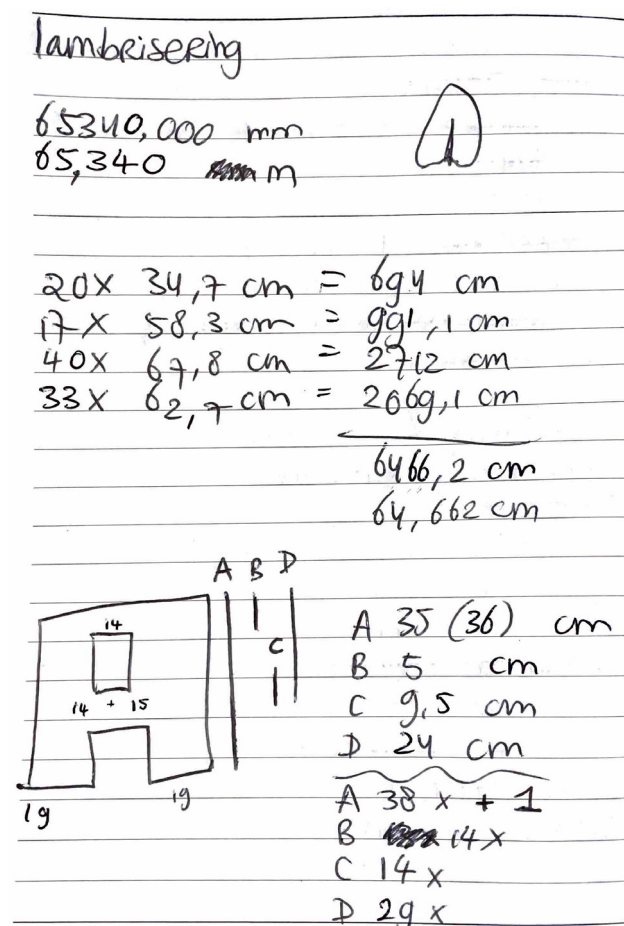 lambrisering
65340,000 mm
65,340 m
20x 34,7 cm = 694 cm
17x 58,3 cm = 991,1 cm
40x 67,8 cm = 2712 cm
33x 62,7 cm = 2069,1 cm
6466,2 cm
64,662 cm
A B D
C
14
14 + 15
19 19
A 35 (36) cm
B 5 cm
C 9,5 cm
D 24 cm
A 38 x + 1
B 14x
C 14x
D 29x